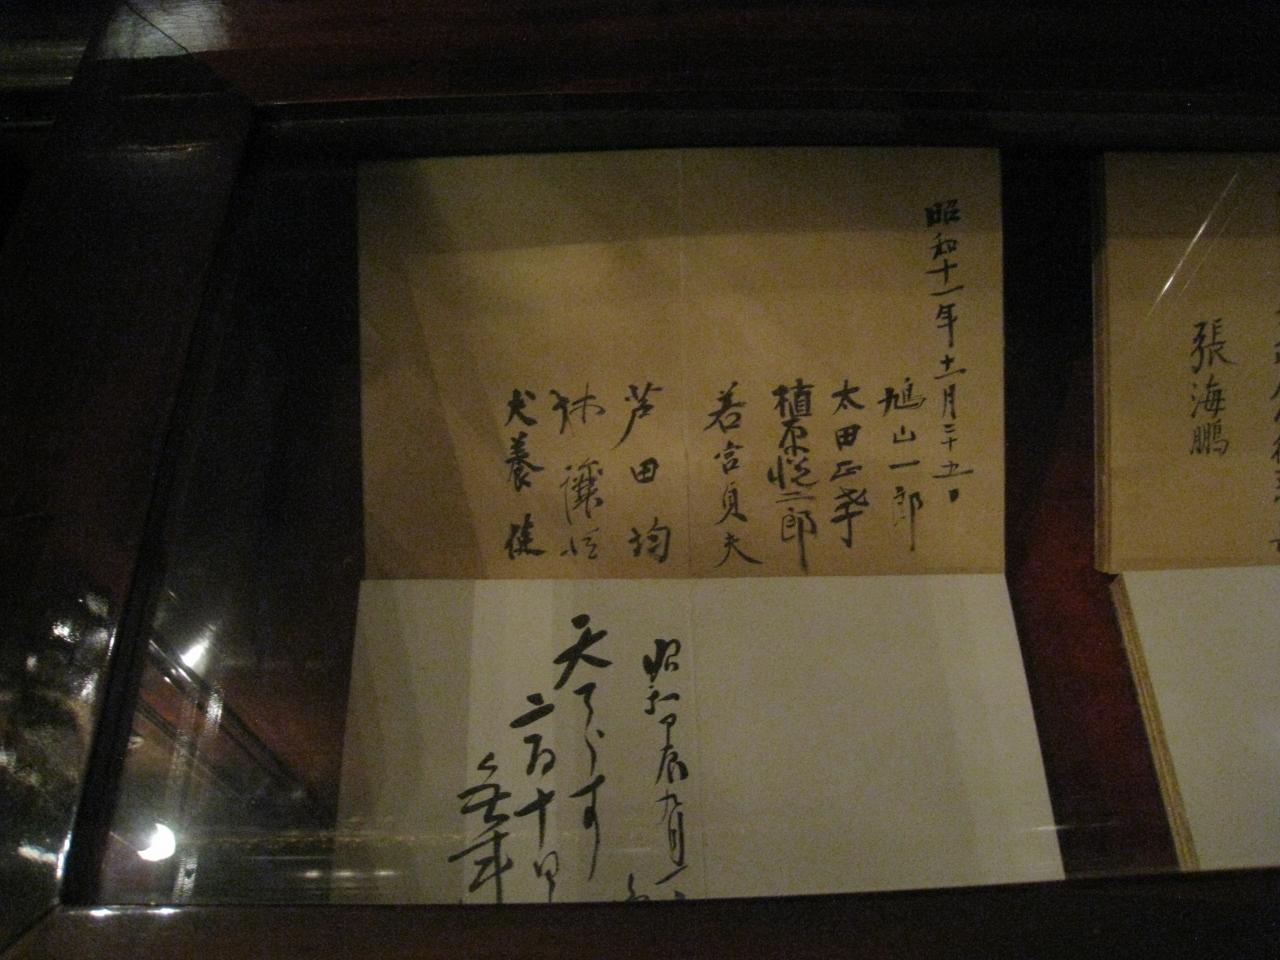 昭和十一年十一月二十五日
鳩山一郎
太田正孝
植原悦二郎
若宮貞夫
芦田均
林譲治
犬養健
昭和甲辰九月一
天てらす
二百十日
無事
張海鵬